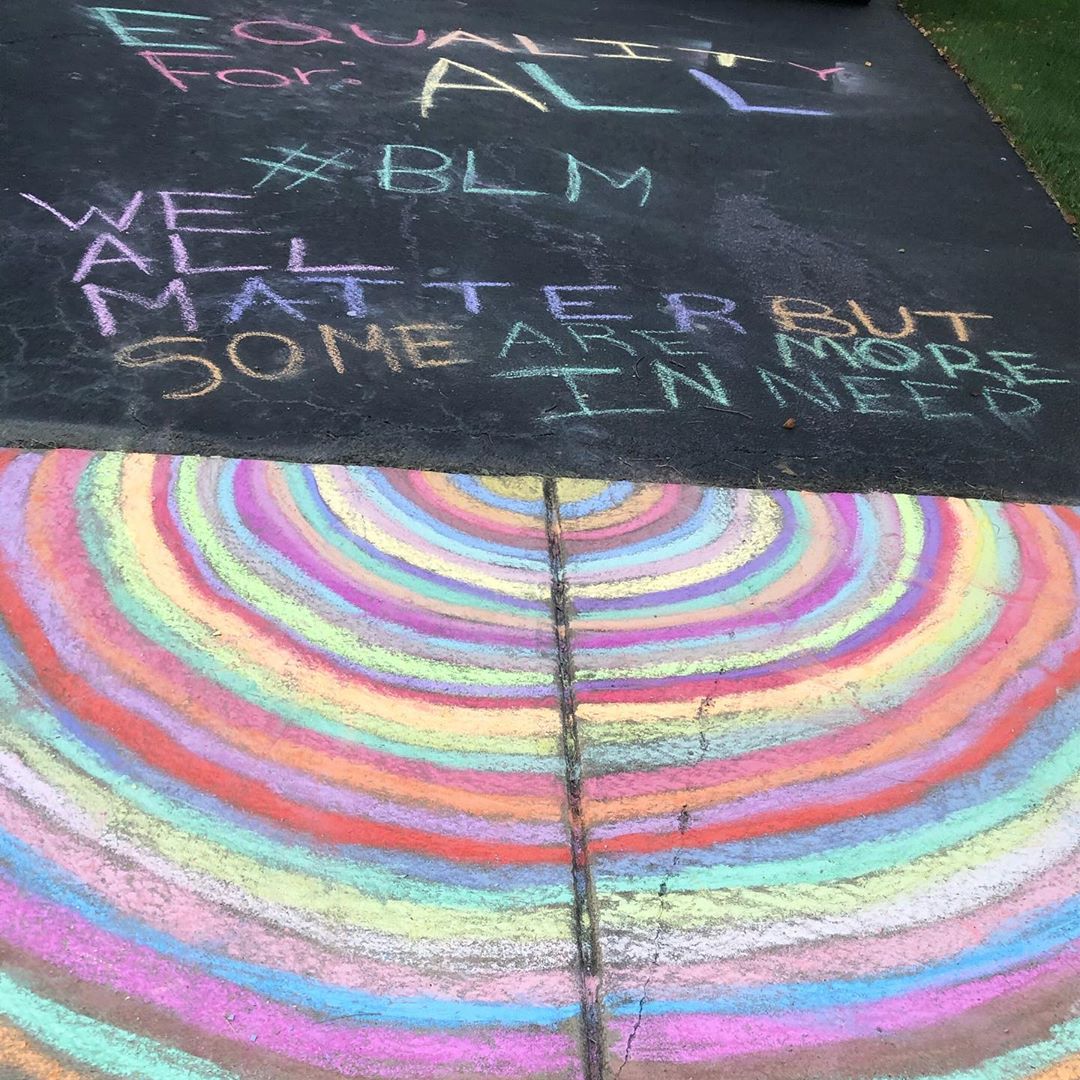 EQUALITY
For: ALL
#BLM
WE
ALL
MATTER BUT
SOME ARE MORE
IN NEED